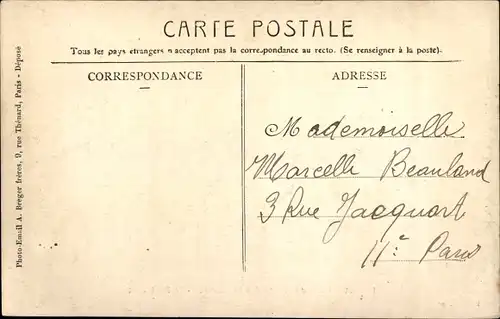 CARTE POSTALE
Tous les pays etrangers n acceptent pas la correspondance au recto. (Se renseigner à la poste).
CORRESPONDANCE
ADRESSE
Mademoiselle
Marcelle Beauland
3 Rue Jacquart
11e Paris
Photo-Email A. Breger frères, 9, rue Thénard, Paris - Déposé